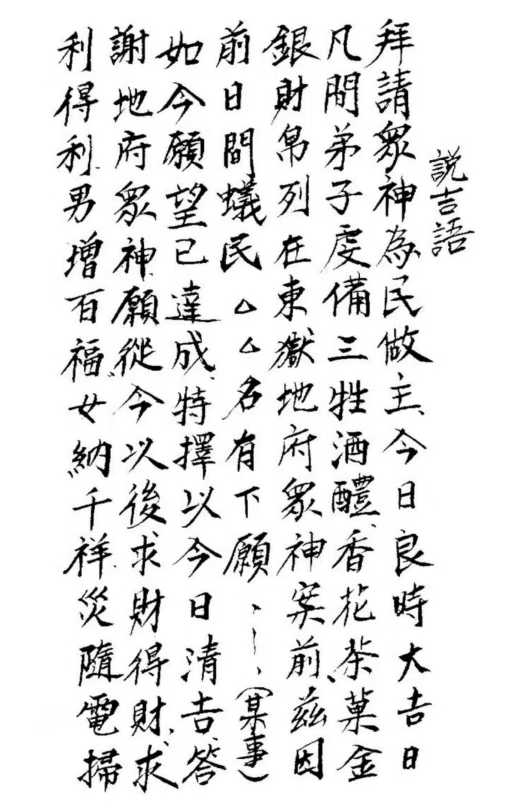 說吉語
拜請眾神為民做主、今日良時大吉日
凡間弟子虔備三牲酒醴、香花茶菓金
銀財帛列在東獄地府眾神案前、茲因
前日間蟻民△△名有下願、︱、(某事)
如今願望已達成、特擇以今日清吉、答
謝地府眾神、願從今以後、求財得財、求
利得利、男增百福、女納千祥、災隨電掃